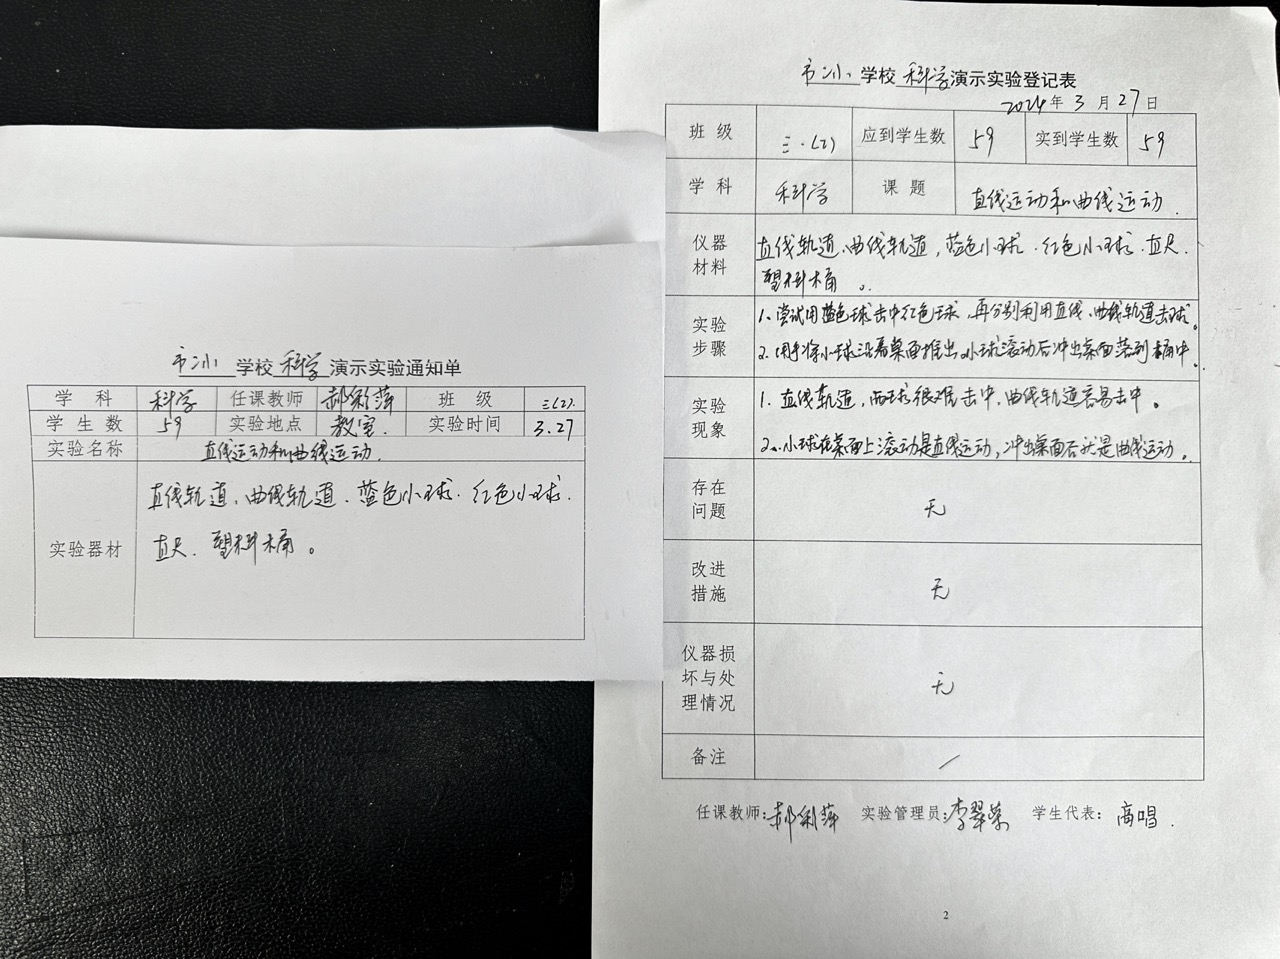 市小 学校 科学 演示实验通知单
学科 科学 任课教师 郝彩萍 班级 三(2).
学生数 59 实验地点 教室. 实验时间 3.27
实验名称 直线运动和曲线运动.
直线轨道、曲线轨道、蓝色小球.红色小球.
实验器材 直尺、塑料桶。
市小 学校 科学 演示实验登记表
2024年3月27日
班级 三.(2) 应到学生数 59 实到学生数 59
学科 科学 课题 直线运动和曲线运动.
仪器材料 直线轨道、曲线轨道,蓝色小球.红色小球.直尺.
塑料桶。
实验步骤 1.尝试用蓝色球击中红色球,再分别利用直线、曲线轨道击球。
2.用手将小球沿着桌面推出,小球滚动后冲出桌面落到桶中。
实验现象 1.直线轨道,两球很难击中,曲线轨道容易击中。
2.小球在桌面上滚动是直线运动,冲出桌面后就是曲线运动。
存在问题 无
改进措施 无
仪器损坏与处理情况 无
备注 /
任课教师:郝彩萍 实验管理员:李翠荣 学生代表:高唱.
2